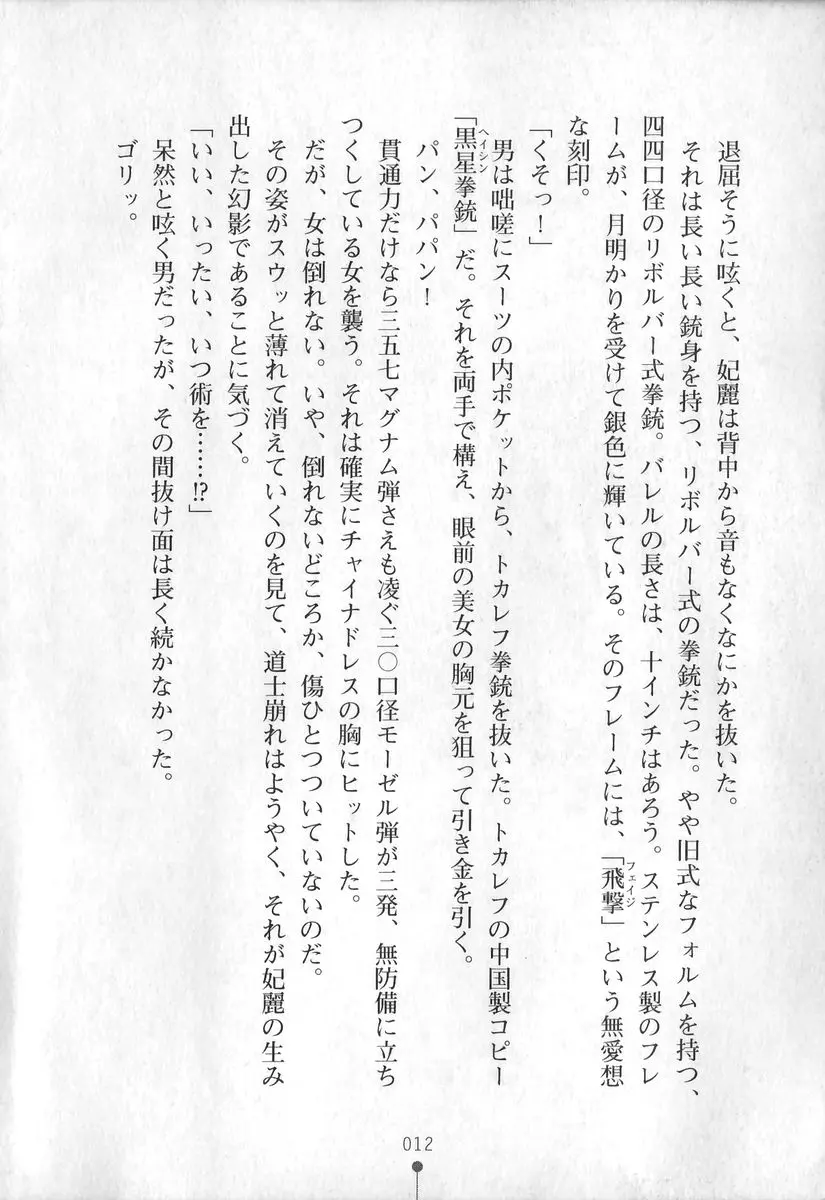 退屈そうに呟くと、妃麗は背中から音もなくなにかを抜いた。
それは長い長い銃身を持つ、リボルバー式の拳銃だった。やや旧式なフォルムを持つ、
四四口径のリボルバー式拳銃。バレルの長さは、十インチはあろう。ステンレス製のフレ
ームが、月明かりを受けて銀色に輝いている。そのフレームには、「飛撃」という無愛想
フェイジ
な刻印。
「くそっ！」
男は咄嗟にスーツの内ポケットから、トカレフ拳銃を抜いた。トカレフの中国製コピー
「黒星拳銃」だ。それを両手で構え、眼前の美女の胸元を狙って引き金を引く。
ヘイシン
パン、パパン！
貫通力だけなら三五七マグナム弾さえも凌ぐ三〇口径モーゼル弾が三発、無防備に立ち
つくしている女を襲う。それは確実にチャイナドレスの胸にヒットした。
だが、女は倒れない。いや、倒れないどころか、傷ひとつついていないのだ。
その姿がスウッと薄れて消えていくのを見て、道士崩れはようやく、それが妃麗の生み
出した幻影であることに気づく。
「いい、いったい、いつ術を……!?」
呆然と呟く男だったが、その間抜け面は長く続かなかった。
ゴリッ。
012